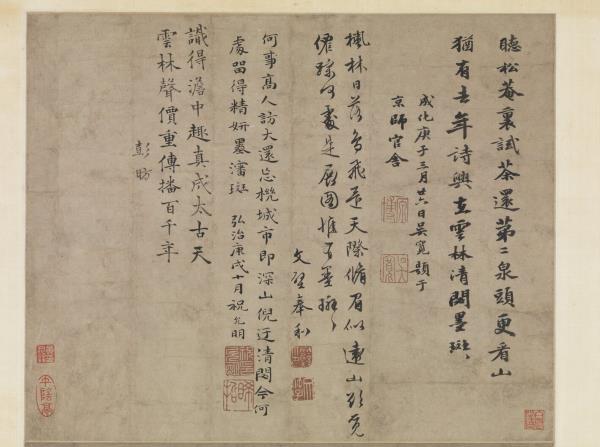 聽松菴裏試茶還第二泉頭更看山
猶有去年詩興在雲林清閟墨斑斑
成化庚子三月廿六日吳寬題于
京師官舍
楓林日落鳥飛還天際脩眉似遠山欲覓
僊蹤何處是展圖惟有墨斑斑
文璧奉和
何事高人訪大還忘機城市即深山倪迂清閟今何
處留得精妍墨瀋斑 弘治庚戌十月祝允明
識得澹中趣真成太古天
雲林聲價重傳播百千年
彭昉